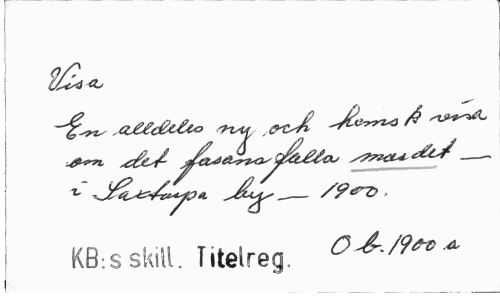 Visa
En alldeles ny och hemsk visa
om det fasansfulla mordet —
i Saxtorpa by — 1900.
O b. 1900 a
KB:s skill. Titelreg.